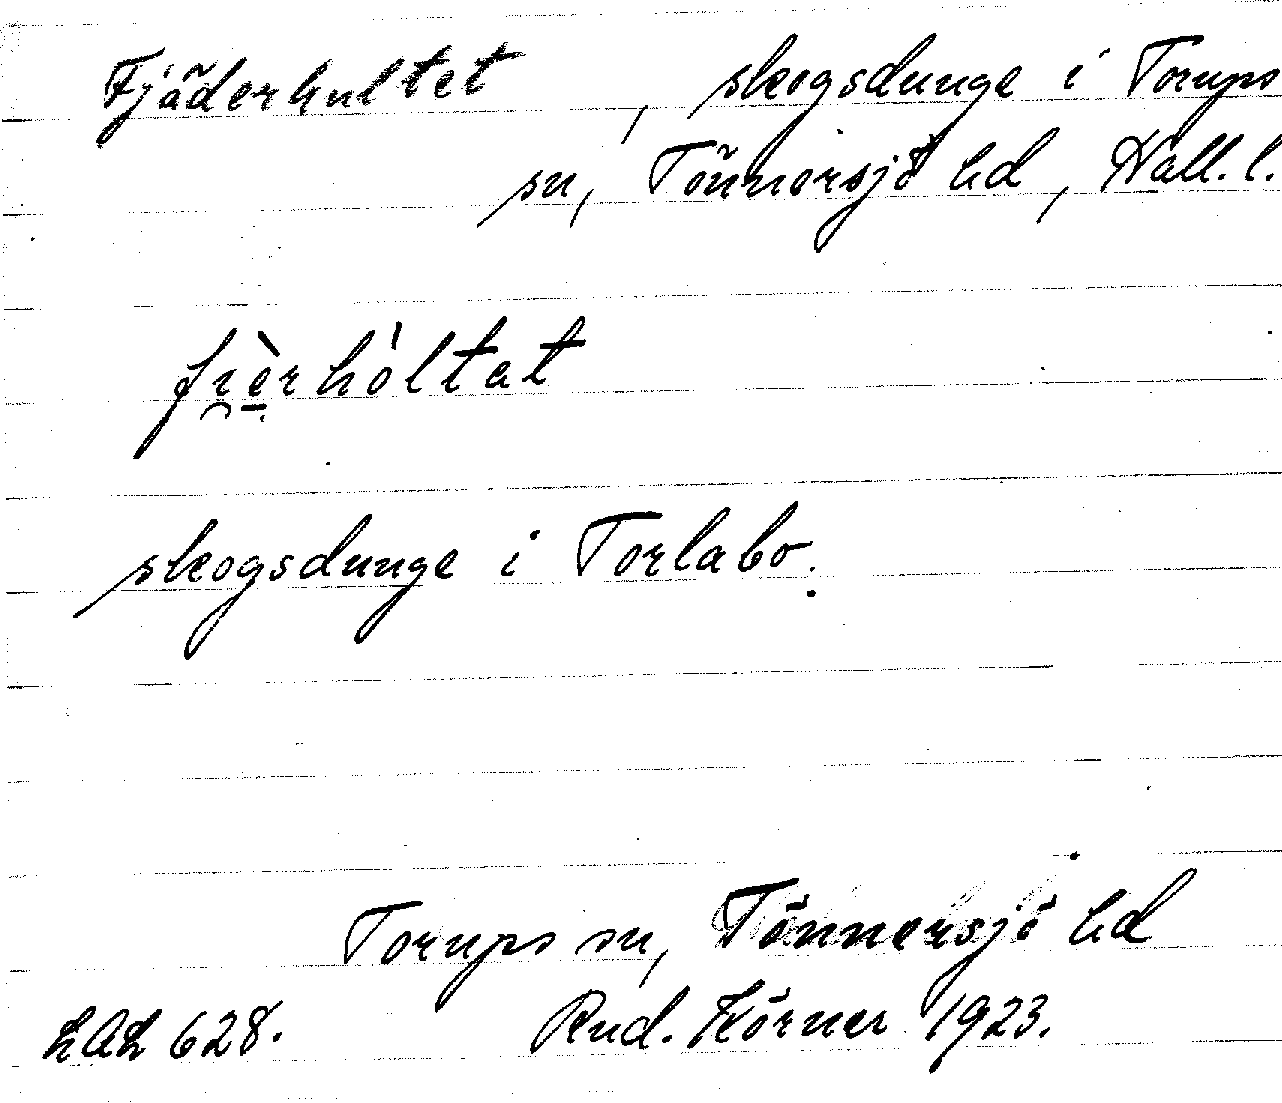 Fjäderhultet, skogsdunge i Torups
sn, Tönnersjö hd, Hall. l.
fi̯è̱rhòltat
skogsdunge i Torlabo.
Torups sn, Tönnersjö hd
LAL 628. Rud. Körner 1923.